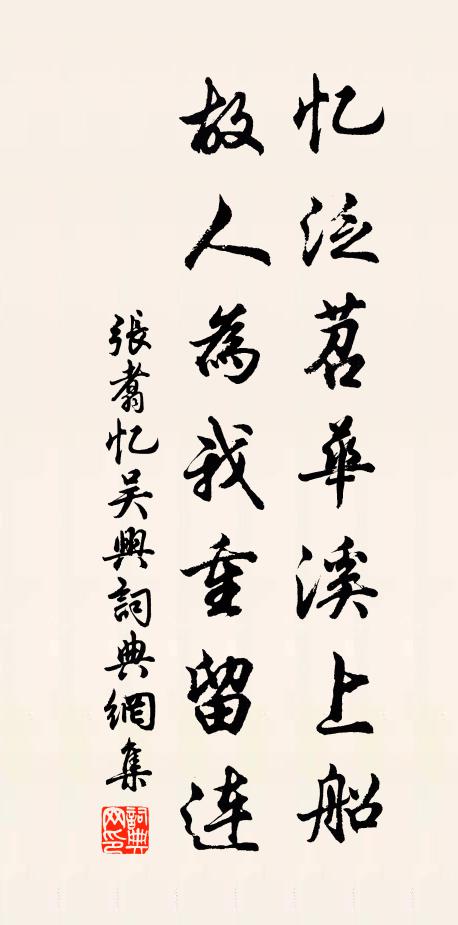 忆泛苕华溪上船
故人為我重留连
張翥忆吴興詞典網集
詞典网印